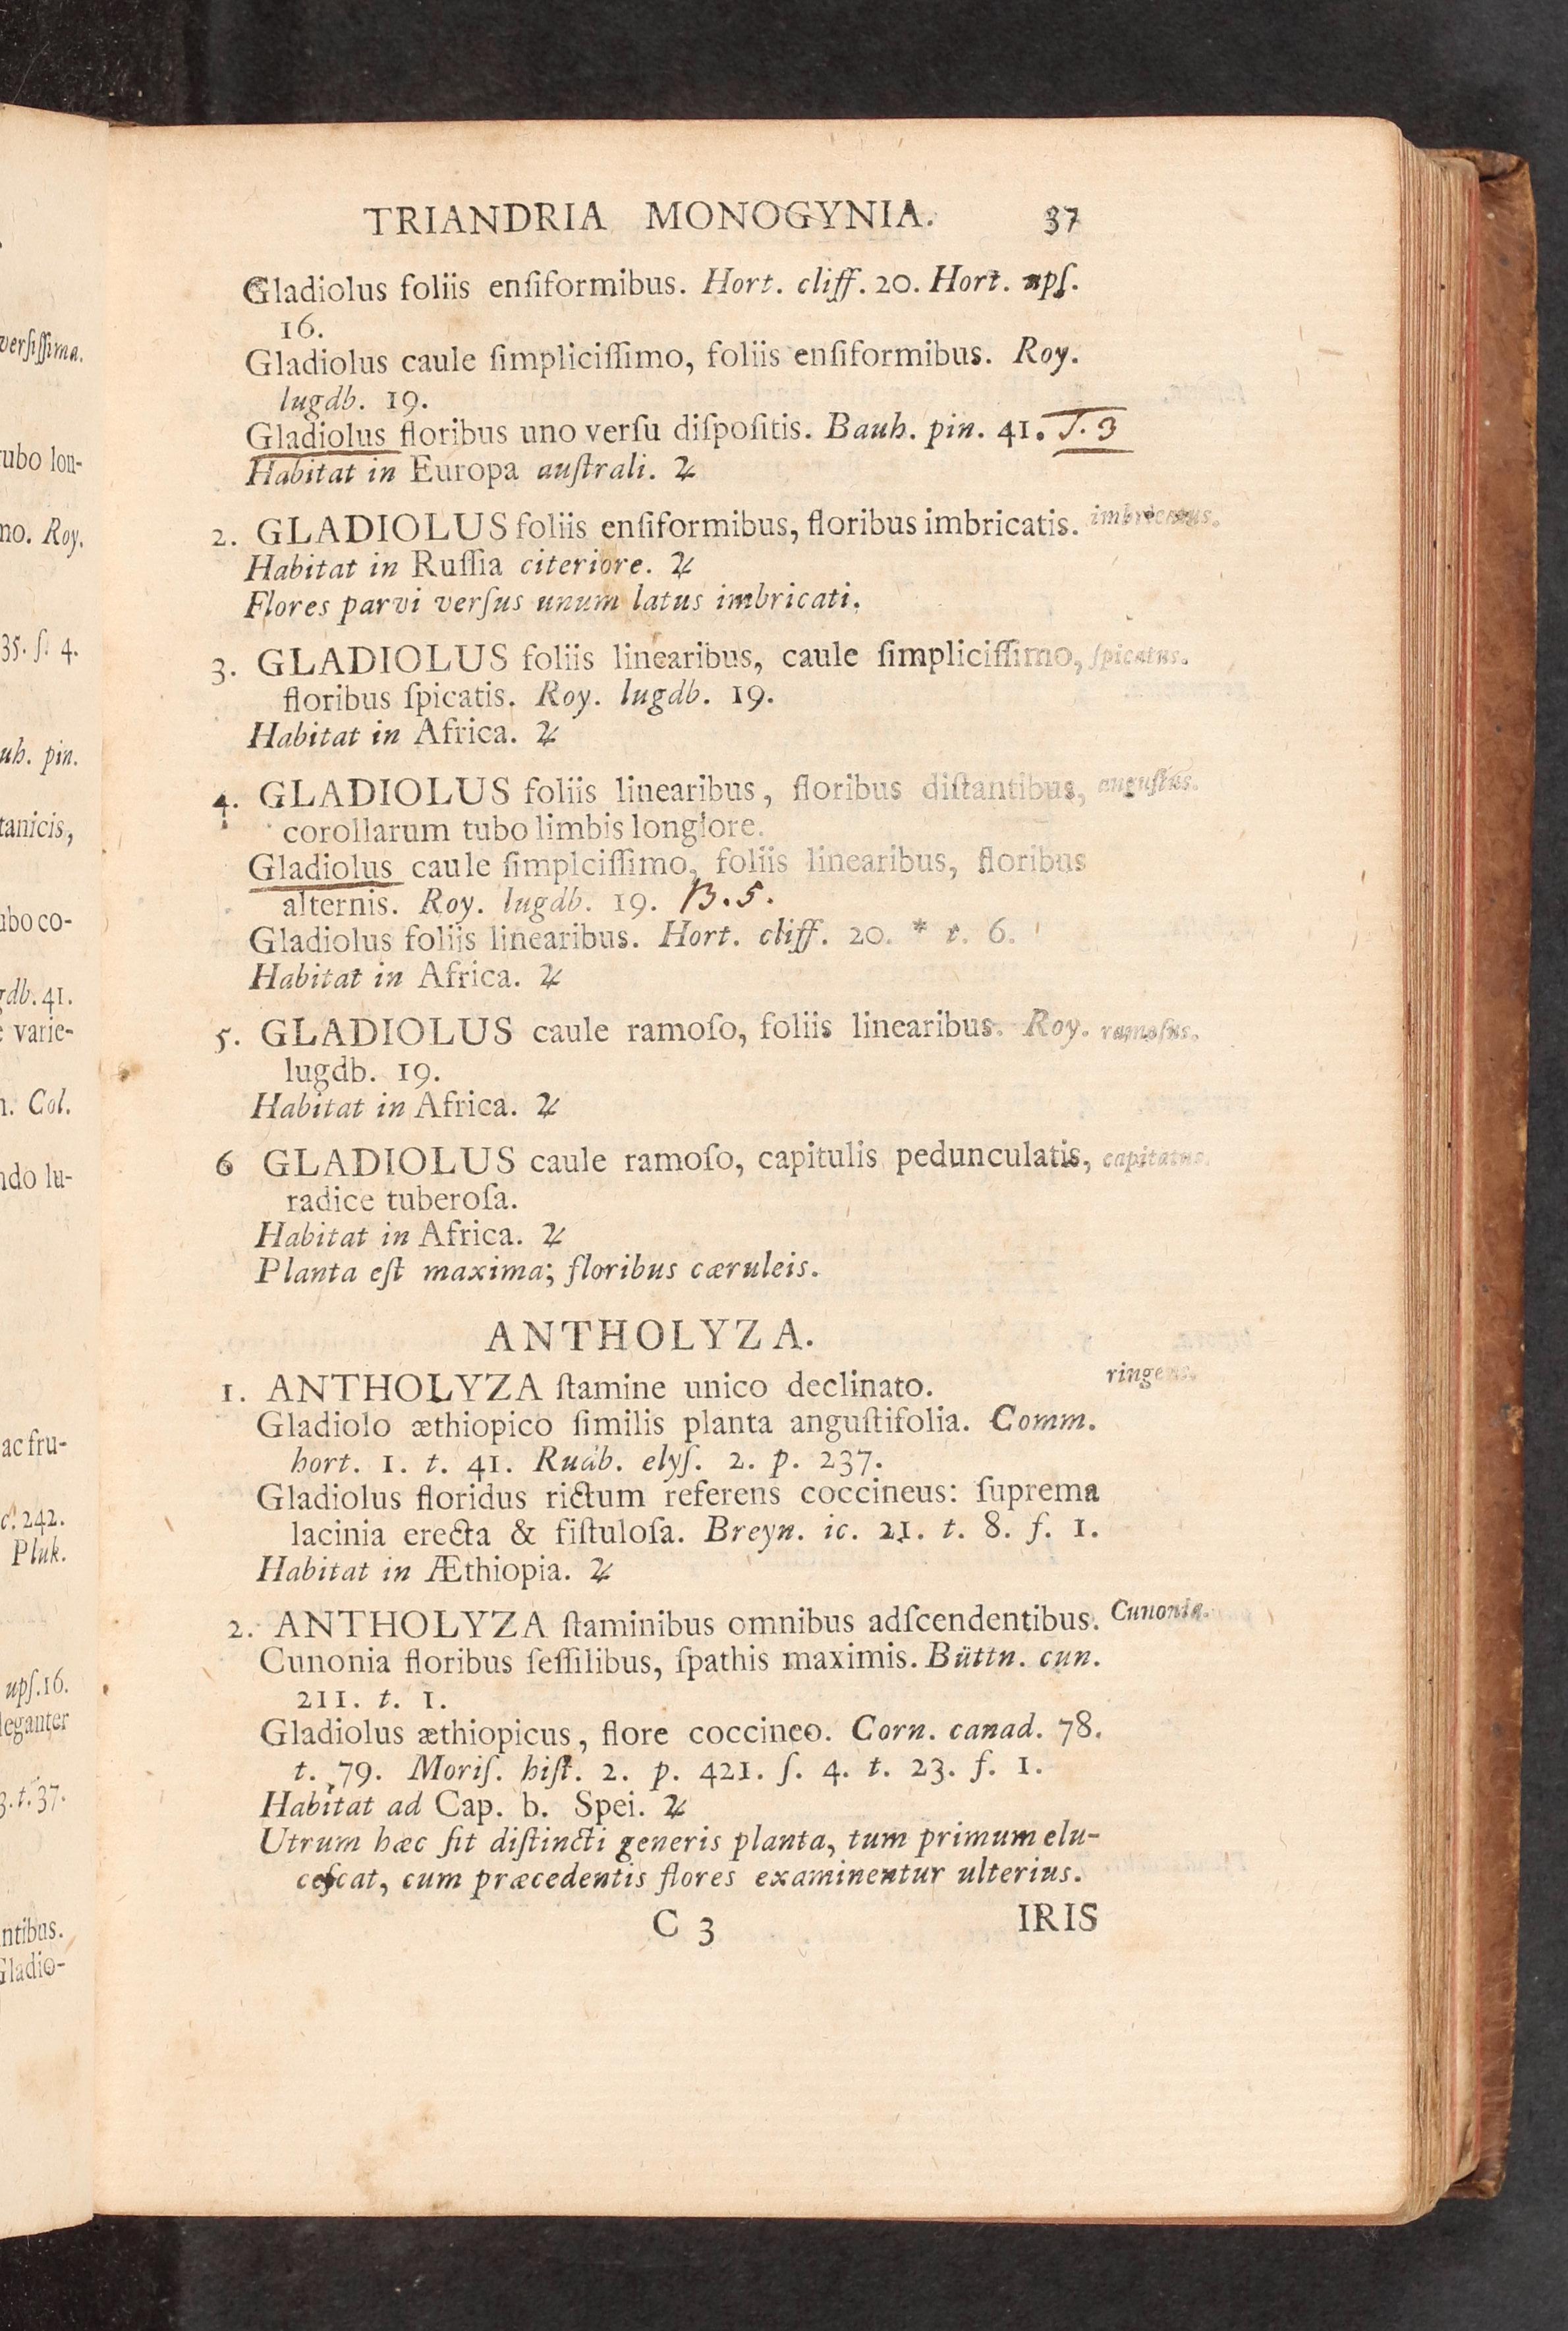 verſiſſima.
tubo lon-
mo. Roy.
35. ſ. 4.
auh. pin.
tanicis,
ubo co-
gdb. 41.
e varie-
n. Col.
ndo lu-
ac fru-
c. 242.
Pluk.
upſ. 16.
leganter
3. t. 37.
ntibus.
Gladio-
TRIANDRIA MONOGYNIA. 37
Gladiolus foliis enſiformibus. Hort. cliff. 20. Hort. upſ.
16.
Gladiolus caule ſimpliciſſimo, foliis enſiformibus. Roy.
lugdb. 19.
Gladiolus floribus uno verſu diſpoſitis. Bauh. pin. 41. J. 3
Habitat in Europa auſtrali. ♃
2. GLADIOLUS foliis enſiformibus, floribus imbricatis. imbricatus.
Habitat in Ruſſia citeriore. ♃
Flores parvi verſus unum latus imbricati.
3. GLADIOLUS foliis linearibus, caule ſimpliciſſimo, ſpicatus.
floribus ſpicatis. Roy. lugdb. 19.
Habitat in Africa. ♃
4. GLADIOLUS foliis linearibus, floribus diſtantibus, anguſtus.
corollarum tubo limbis longiore.
Gladiolus caule ſimplciſſimo, foliis linearibus, floribus
alternis. Roy. lugdb. 19. B. 5.
Gladiolus foliis linearibus. Hort. cliff. 20. * t. 6.
Habitat in Africa. ♃
5. GLADIOLUS caule ramoſo, foliis linearibus. Roy. ramoſus.
lugdb. 19.
Habitat in Africa. ♃
6 GLADIOLUS caule ramoſo, capitulis pedunculatis, capitatus.
radice tuberoſa.
Habitat in Africa. ♃
Planta eſt maxima; floribus cæruleis.
ANTHOLYZA.
1. ANTHOLYZA ſtamine unico declinato. ringens.
Gladiolo æthiopico ſimilis planta anguſtifolia. Comm.
hort. 1. t. 41. Rudb. elyſ. 2. p. 237.
Gladiolus floridus rictum referens coccineus: ſuprema
lacinia erecta & fiſtuloſa. Breyn. ic. 21. t. 8. f. 1.
Habitat in Æthiopia. ♃
2. ANTHOLYZA ſtaminibus omnibus adſcendentibus. Cunonia.
Cunonia floribus ſeſſilibus, ſpathis maximis. Büttn. cun.
211. t. 1.
Gladiolus æthiopicus, flore coccineo. Corn. canad. 78.
t. 79. Moriſ. hiſt. 2. p. 421. ſ. 4. t. 23. f. 1.
Habitat ad Cap. b. Spei. ♃
Utrum hæc ſit diſtincti generis planta, tum primum elu-
ceſcat, cum præcedentis flores examinentur ulterius.
C 3 IRIS